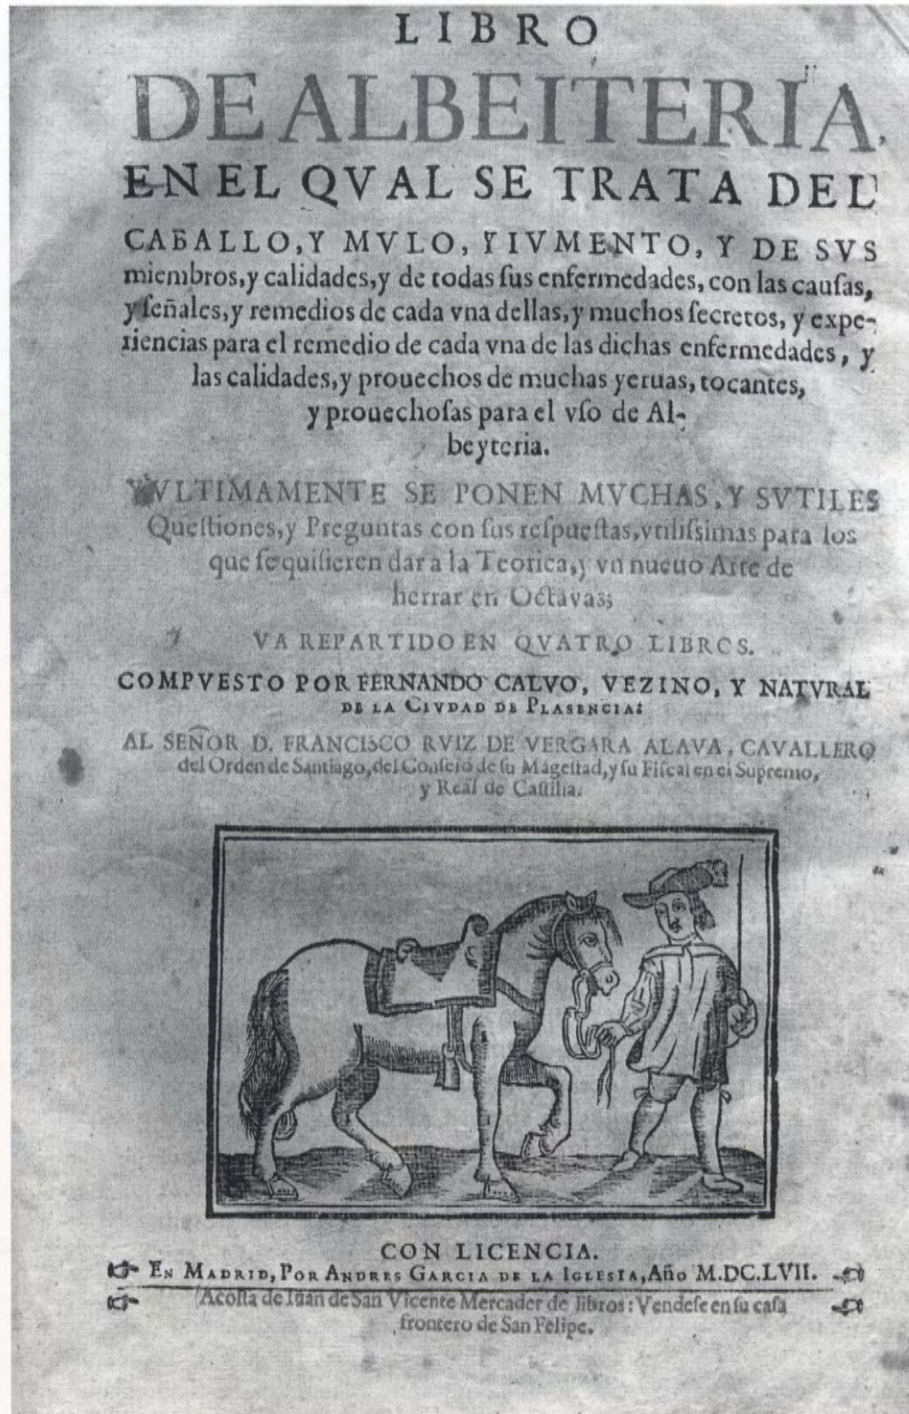 LIBRO
DE ALBEITERIA,
EN EL QVAL SE TRATA DEL
CABALLO, Y MVLO, Y IVMENTO, Y DE SVS
miembros, y calidades, y de todas ſus enfermedades, con las cauſas,
y ſeñales, y remedios de cada vna dellas, y muchos ſecretos, y expe-
riencias para el remedio de cada vna de las dichas enfermedades, y
las calidades, y prouechos de muchas yeruas, tocantes,
y prouechoſas para el vſo de Al-
beyteria.
Y VLTIMAMENTE SE PONEN MVCHAS, Y SVTILES
Queſtiones, y Preguntas con ſus reſpueſtas, vtiliſsimas para los
que ſe quiſieren dar a la Teorica, y vn nueuo Arte de
herrar en Octavas;
VA REPARTIDO EN QVATRO LIBROS.
COMPVESTO POR FERNANDO CALVO, VEZINO, Y NATVRAL
DE LA CIVDAD DE PLASENCIA:
AL SEÑOR D. FRANCISCO RVIZ DE VERGARA ALAVA, CAVALLERO
del Orden de Santiago, del Conſejo de ſu Mageſtad, y ſu Fiſcal en el Supremo,
y Real de Caſtilla.
CON LICENCIA.
☞ EN MADRID, POR ANDRES GARCIA DE LA IGLESIA, Año M.DC.LVII. ☜
☞ Acoſta de Iuan de San Vicente Mercader de libros: Vendeſe en ſu caſa ☜
frontero de San Felipe.